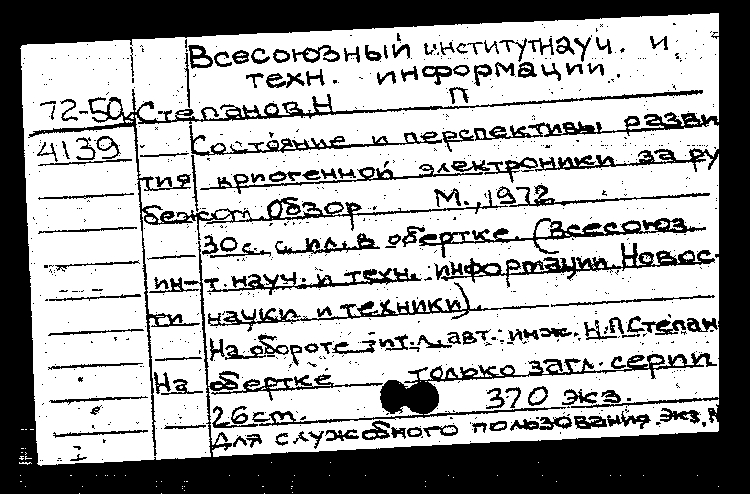 Всесоюзный институт науч. и
техн. информации.
72-50к Степанов, Н П
4139 Состояние и перспективы разви
тия криогенной электроники за ру
бежом. Обзор. М., 1972.
30 с. с ил. в обертке. (Всесоюз.
ин-т. науч. и техн. информации. Новос-
ти науки и техники).
На обороте тит. л. авт.: инж. Н.П. Степан
На обертке только загл. серии
26 ст. 370 экз.
Для служебного пользования. Экз. №